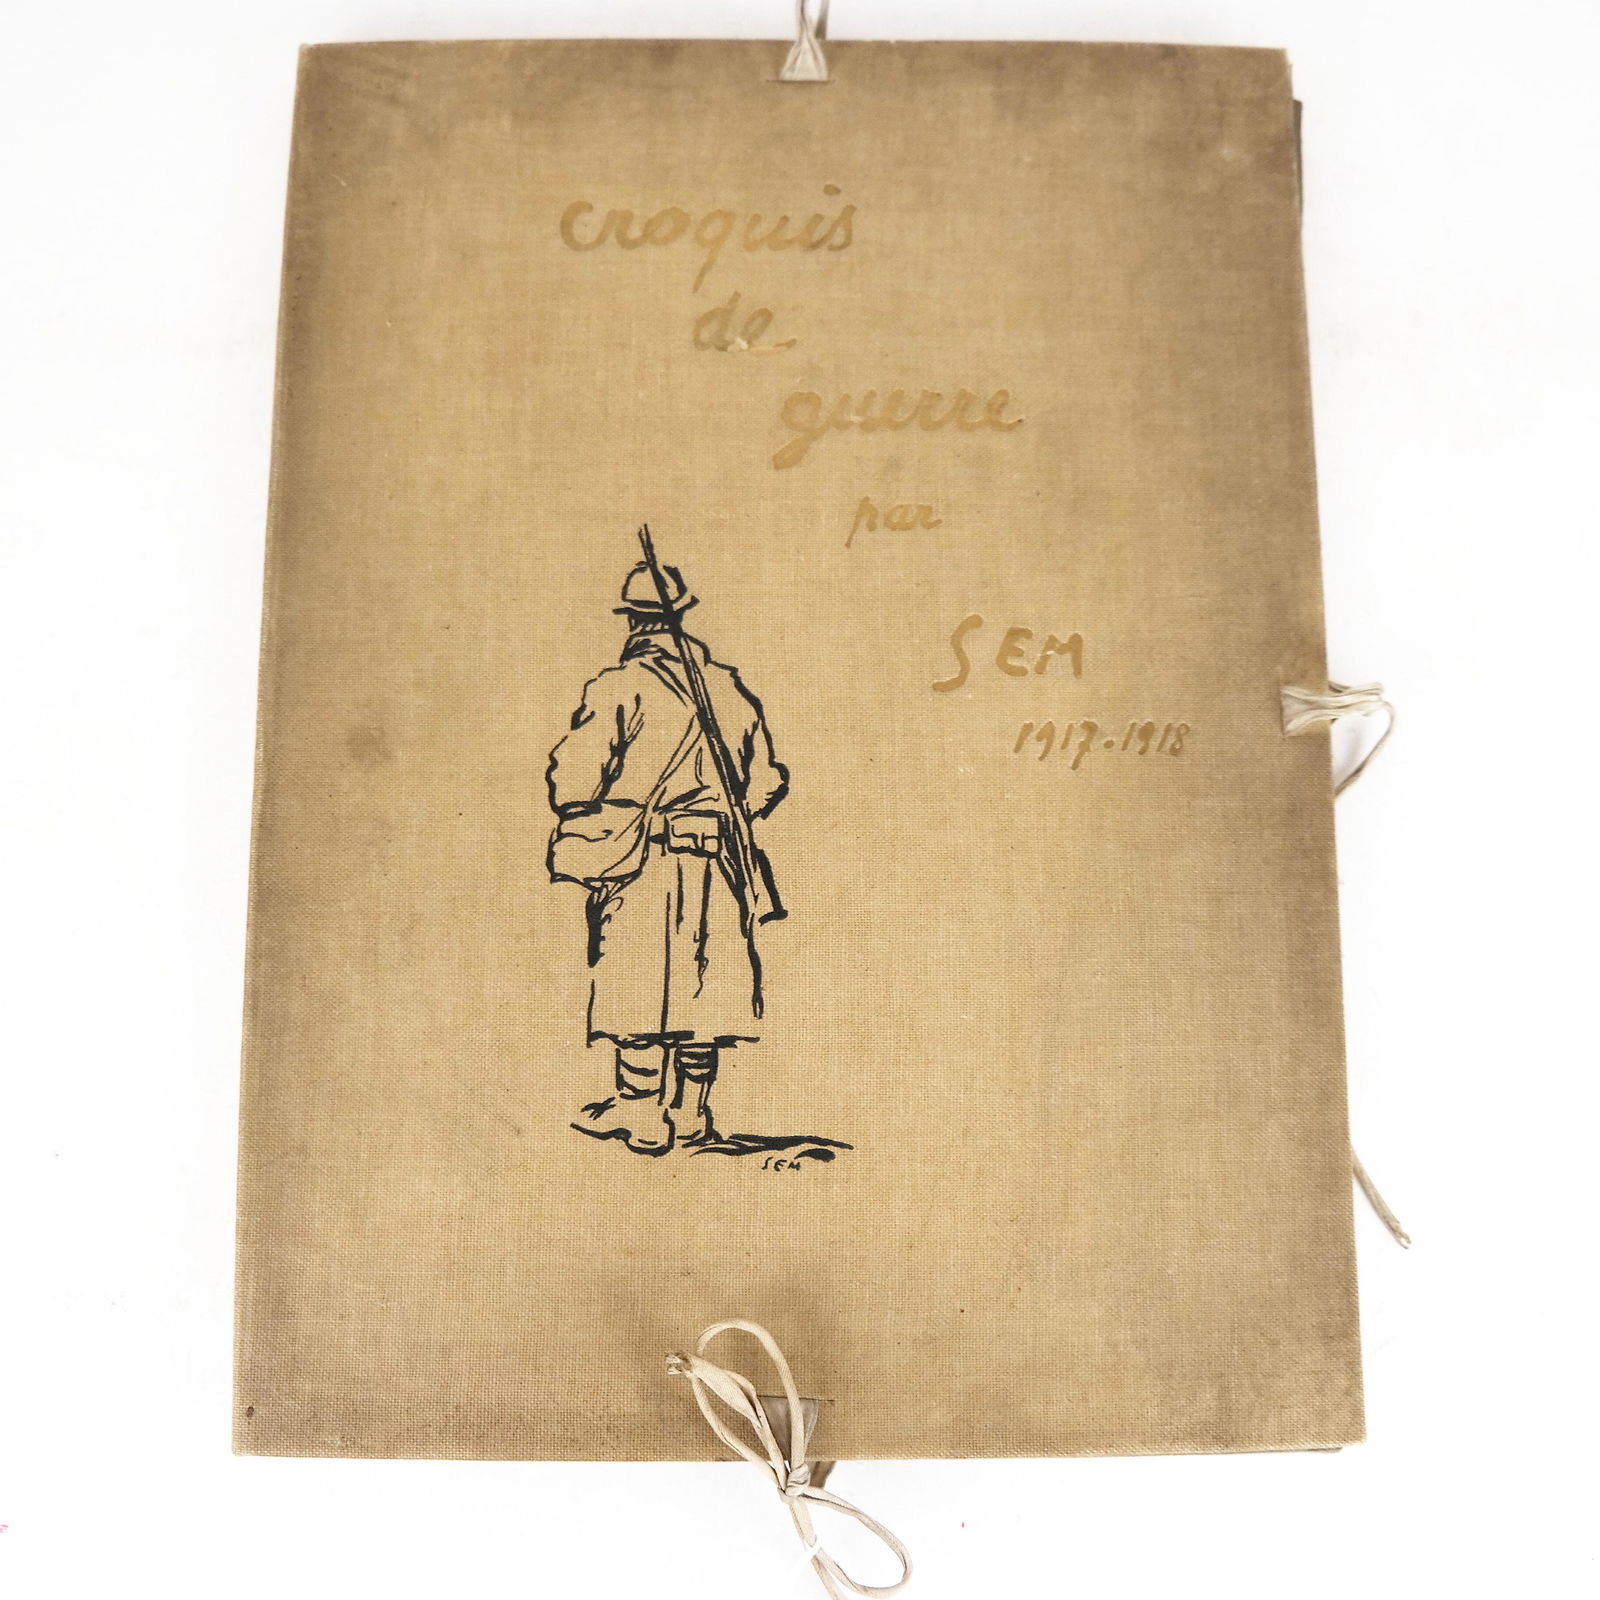 croquis
de
guerre
par
SEM
1917.1918
SEM